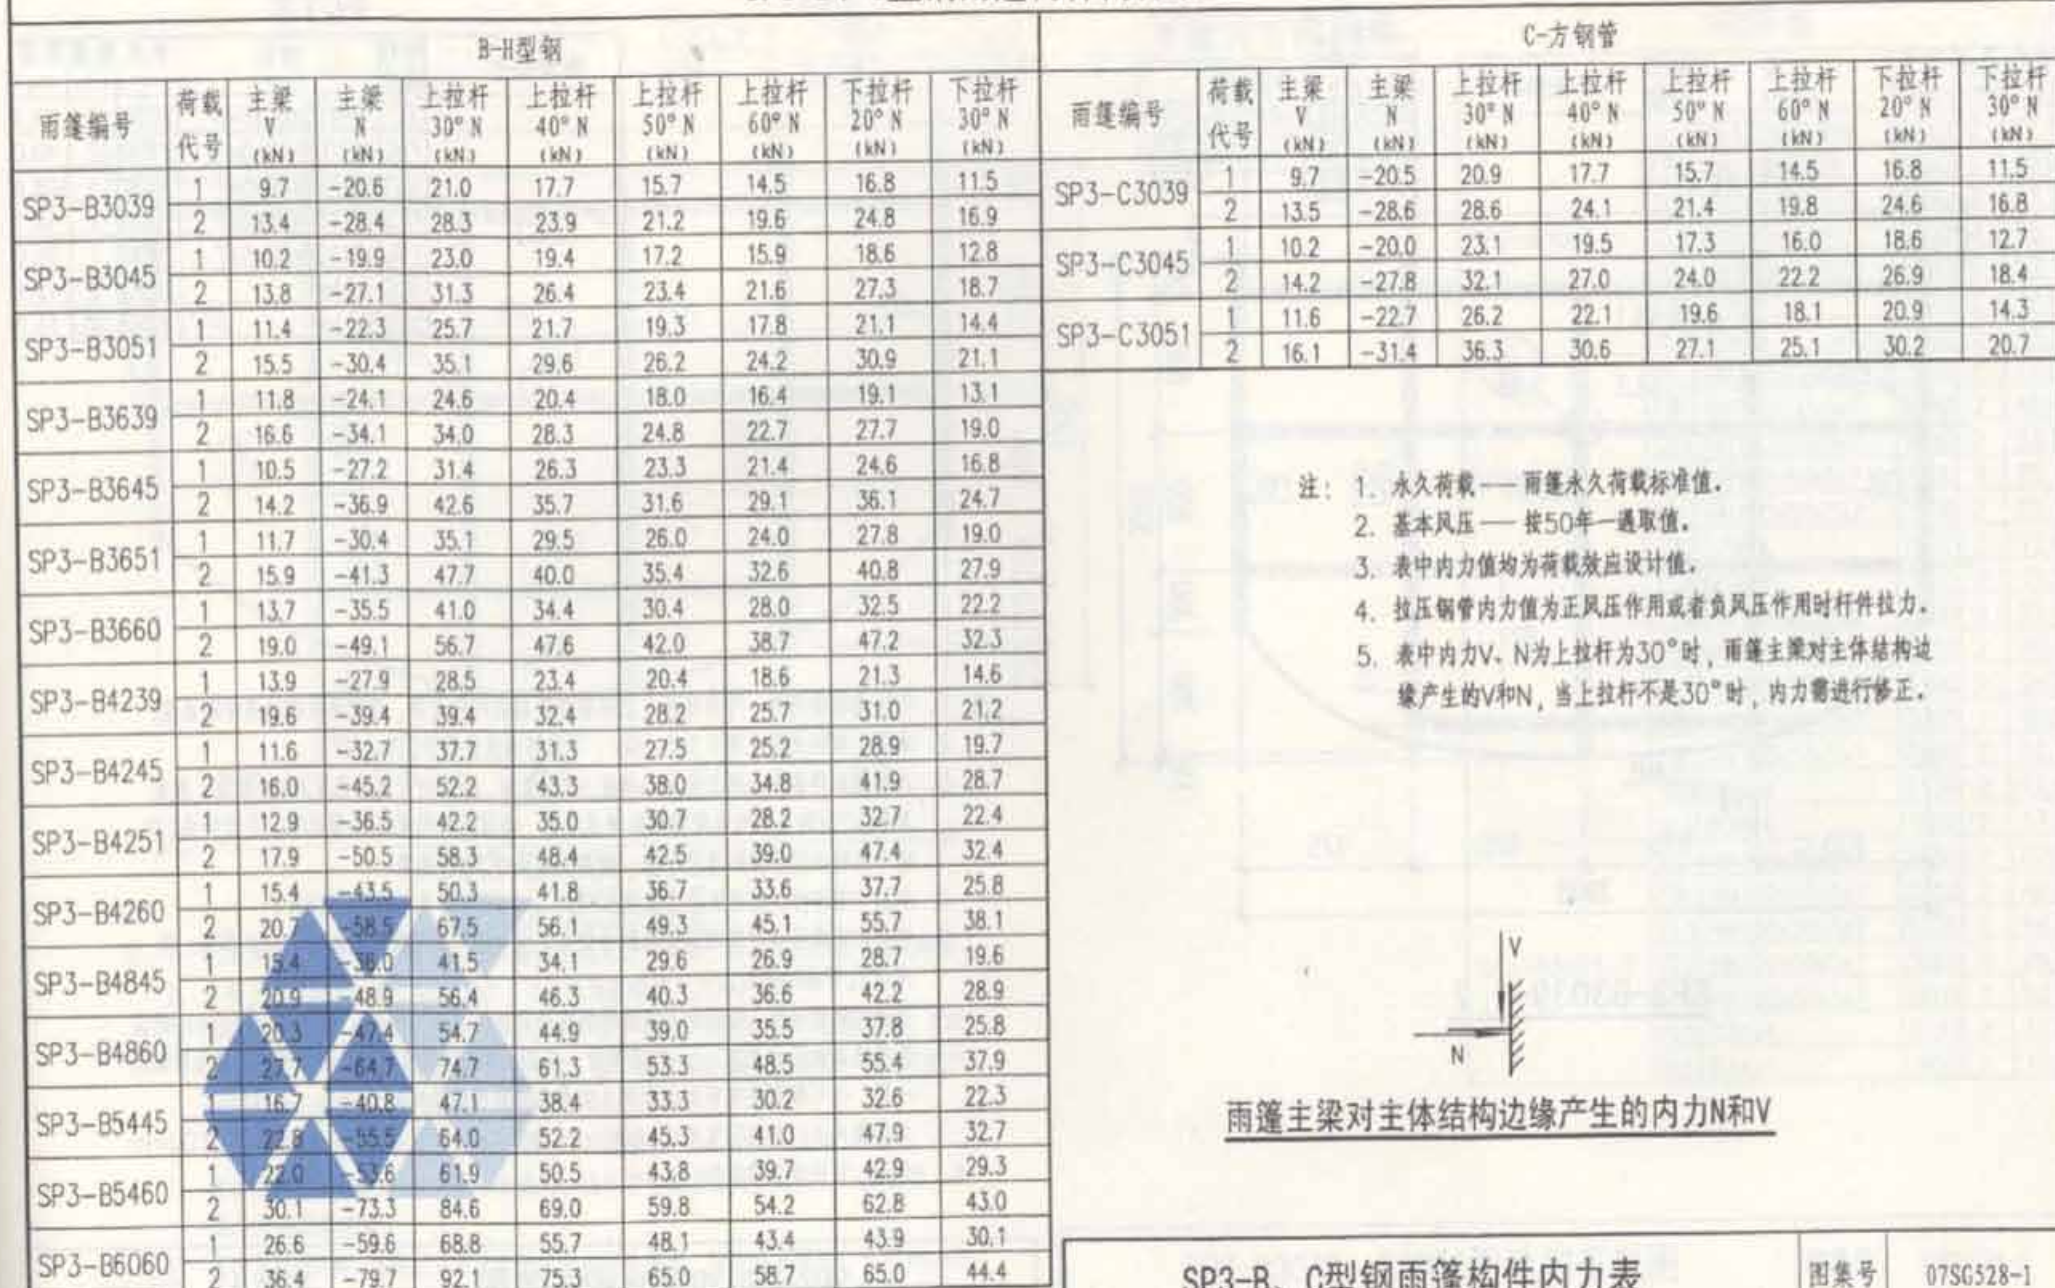 B-H型钢
雨篷编号 荷载代号 主梁 V (kN) 主梁 N (kN) 上拉杆 30° N (kN) 上拉杆 40° N (kN) 上拉杆 50° N (kN) 上拉杆 60° N (kN) 下拉杆 20° N (kN) 下拉杆 30° N (kN)
SP3-B3039 1 9.7 -20.6 21.0 17.7 15.7 14.5 16.8 11.5
2 13.4 -28.4 28.3 23.9 21.2 19.6 24.8 16.9
SP3-B3045 1 10.2 -19.9 23.0 19.4 17.2 15.9 18.6 12.8
2 13.8 -27.1 31.3 26.4 23.4 21.6 27.3 18.7
SP3-B3051 1 11.4 -22.3 25.7 21.7 19.3 17.8 21.1 14.4
2 15.5 -30.4 35.1 29.6 26.2 24.2 30.9 21.1
SP3-B3639 1 11.8 -24.1 24.6 20.4 18.0 16.4 19.1 13.1
2 16.6 -34.1 34.0 28.3 24.8 22.7 27.7 19.0
SP3-B3645 1 10.5 -27.2 31.4 26.3 23.3 21.4 24.6 16.8
2 14.2 -36.9 42.6 35.7 31.6 29.1 36.1 24.7
SP3-B3651 1 11.7 -30.4 35.1 29.5 26.0 24.0 27.8 19.0
2 15.9 -41.3 47.7 40.0 35.4 32.6 40.8 27.9
SP3-B3660 1 13.7 -35.5 41.0 34.4 30.4 28.0 32.5 22.2
2 19.0 -49.1 56.7 47.6 42.0 38.7 47.2 32.3
SP3-B4239 1 13.9 -27.9 28.5 23.4 20.4 18.6 21.3 14.6
2 19.6 -39.4 39.4 32.4 28.2 25.7 31.0 21.2
SP3-B4245 1 11.6 -32.7 37.7 31.3 27.5 25.2 28.9 19.7
2 16.0 -45.2 52.2 43.3 38.0 34.8 41.9 28.7
SP3-B4251 1 12.9 -36.5 42.2 35.0 30.7 28.2 32.7 22.4
2 17.9 -50.5 58.3 48.4 42.5 39.0 47.4 32.4
SP3-B4260 1 15.4 -43.5 50.3 41.8 36.7 33.6 37.7 25.8
2 20.7 -58.5 67.5 56.1 49.3 45.1 55.7 38.1
SP3-B4845 1 15.4 -36.0 41.5 34.1 29.6 26.9 28.7 19.6
2 20.9 -48.9 56.4 46.3 40.3 36.6 42.2 28.9
SP3-B4860 1 20.3 -47.4 54.7 44.9 39.0 35.5 37.8 25.8
2 27.7 -64.7 74.7 61.3 53.3 48.5 55.4 37.9
SP3-B5445 1 16.7 -40.8 47.1 38.4 33.3 30.2 32.6 22.3
2 22.8 -55.5 64.0 52.2 45.3 41.0 47.9 32.7
SP3-B5460 1 22.0 -53.6 61.9 50.5 43.8 39.7 42.9 29.3
2 30.1 -73.3 84.6 69.0 59.8 54.2 62.8 43.0
SP3-B6060 1 26.6 -59.6 68.8 55.7 48.1 43.4 43.9 30.1
2 36.4 -79.7 92.1 75.3 65.0 58.7 65.0 44.4
C-方钢管
雨篷编号 荷载代号 主梁 V (kN) 主梁 N (kN) 上拉杆 30° N (kN) 上拉杆 40° N (kN) 上拉杆 50° N (kN) 上拉杆 60° N (kN) 下拉杆 20° N (kN) 下拉杆 30° N (kN)
SP3-C3039 1 9.7 -20.5 20.9 17.7 15.7 14.5 16.8 11.5
2 13.5 -28.6 28.6 24.1 21.4 19.8 24.6 16.8
SP3-C3045 1 10.2 -20.0 23.1 19.5 17.3 16.0 18.6 12.7
2 14.2 -27.8 32.1 27.0 24.0 22.2 26.9 18.4
SP3-C3051 1 11.6 -22.7 26.2 22.1 19.6 18.1 20.9 14.3
2 16.1 -31.4 36.3 30.6 27.1 25.1 30.2 20.7
注: 1. 永久荷载——雨篷永久荷载标准值。
2. 基本风压——按50年一遇取值。
3. 表中内力值均为荷载效应设计值。
4. 拉压钢管内力值为正风压作用或者负风压作用时杆件拉力。
5. 表中内力V、N为上拉杆为30°时，雨篷主梁对主体结构边
缘产生的V和N，当上拉杆不是30°时，内力需进行修正。
V
N
雨篷主梁对主体结构边缘产生的内力N和V
SP3-B、C型钢雨篷构件内力表 图集号 07SG528-1